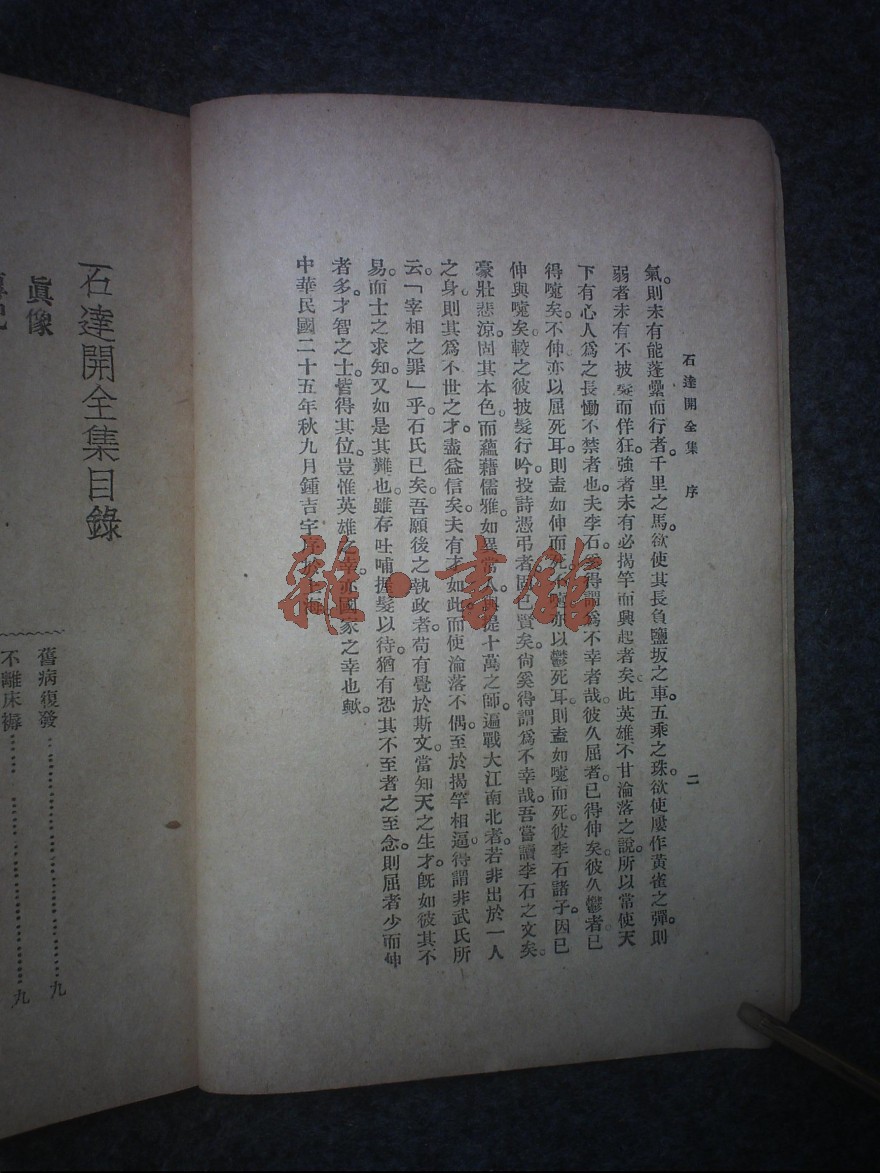 石達開全集 序 二
氣。則未有能蓬纍而行者。千里之馬。欲使其長負鹽坂之車。五乘之珠。欲使屢作黃雀之彈。則
弱者未有不披髮而佯狂。強者未有必揭竿而興起者矣。此英雄不甘淪落之說。所以常使天
下有心人為之長慟不禁者也。夫李石奚得謂為不幸者哉。彼久屈者。已得伸矣。彼久鬱者。已
得噓矣。不伸亦以屈死耳。則盍如伸而死。不噓亦以鬱死耳。則盍如噓而死。彼李石諸子。因已
伸與噓矣。較之彼披髮行吟。投詩憑弔者。固已賢矣。尙奚得謂為不幸哉。吾嘗讀李石之文矣。
豪壯悲涼。固其本色。而蘊藉儒雅。如異常人。與提十萬之師。遍戰大江南北者。若非出於一人
之身。則其為不世之才。盡益信矣。夫有才如此。而使淪落不偶。至於揭竿相逼。得謂非武氏所
云。「宰相之罪」乎。石氏已矣。吾願後之執政者。苟有覺於斯文。當知天之生才。旣如彼其不
易。而士之求知。又如是其難也。雖存吐哺握髮以待。猶有恐其不至者之至念。則屈者少而伸
者多。才智之士。皆得其位。豈惟英雄之幸。亦國家之幸也歟。
中華民國二十五年秋九月鍾吉宇序於上海
石達開全集目錄
眞像
舊病復發……九
不離床褥……九
雜·書館